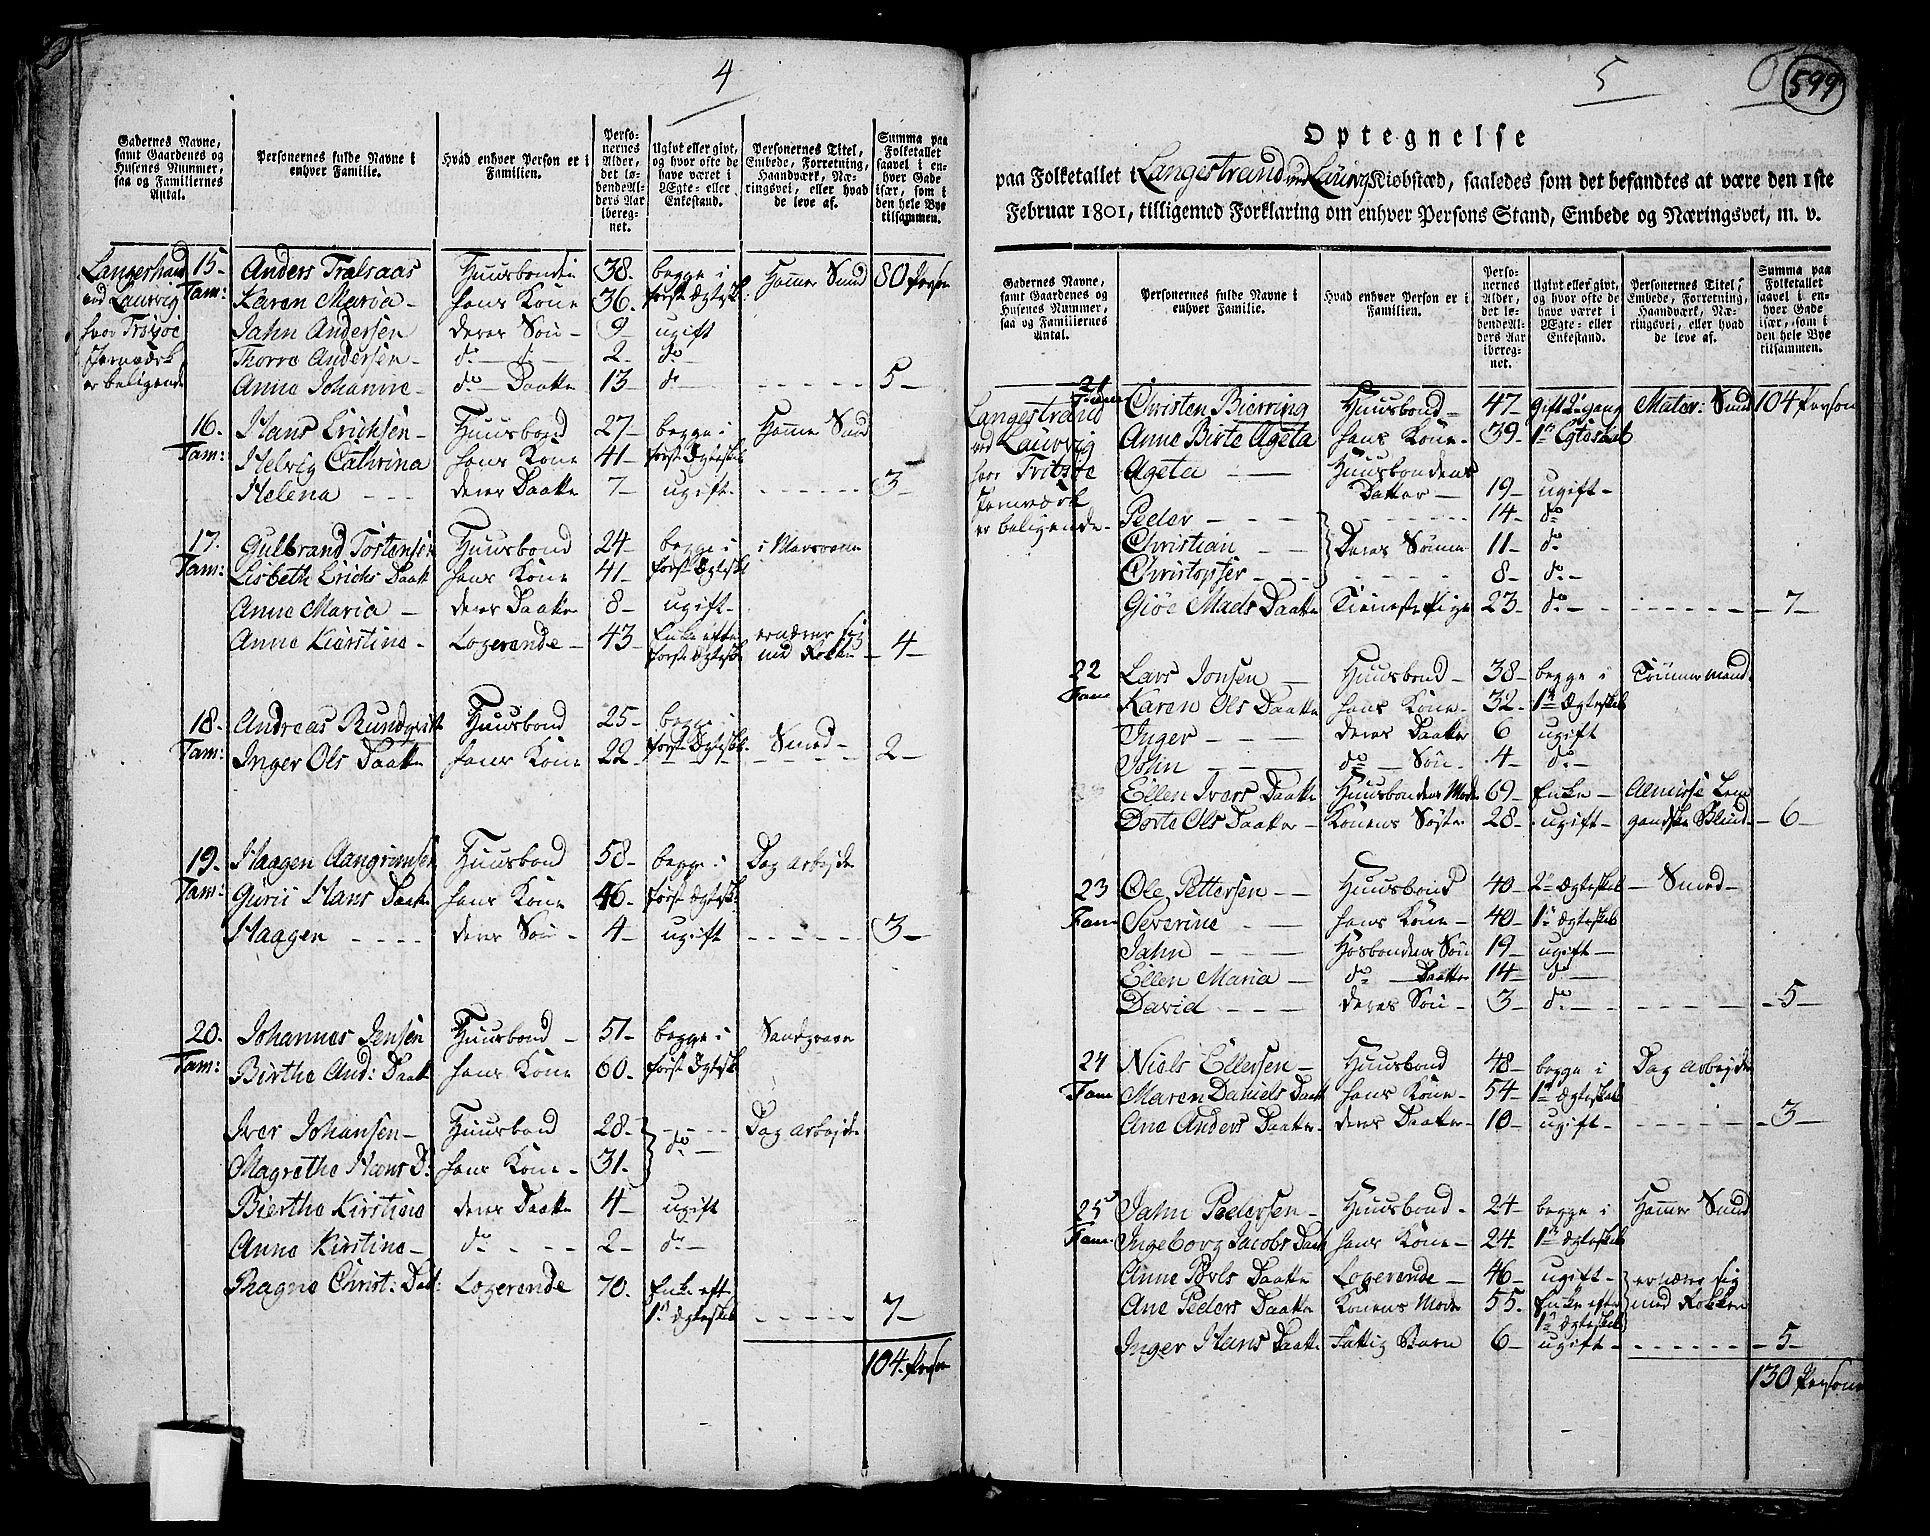 4
Gadernes Navne, samt Gaardenes og Husenes Nummer, saa og Familiernes Antal.
Personernes fulde Navne i enhver Familie.
Hvad enhver Person er i Familien.
Personernes Alder, det løbende Alders Aar iberegnet.
Ugivt eller givt, og hvor ofte de have været i Ægte- eller Enkestand.
Personernes Titel, Embede, Forretning, Haandværk, Næringsvei, eller hvad de leve af.
Summa paa Folketallet saavel i enhver Gade især, som i den hele Bye tilsammen.
Langestrand
ved Laurvig
hvor Fritzöe
Jernværk
er beligende
15. Anders Trælsaas Huusbonde 38. begge i Hamer Smid 80 Person
Fam: Karen Maria hans Kone 36. først Ægtesk:
Jahn Andersen deres Sön 9 ugift
Thorre Andersen do do 2 do
Anne Johanne do Daatter 13 do 5
16. Hans Erichsen Huusbond 27 begge i Hamer Smid
Fam: Helvig Cathrina hans Kone 41 først Ægtesk
Helena deres Daatter 7 ugift 3
17. Gulbrand Tostensen Huusbond 24 begge i i Masovnen
Fam: Lisbeth Erichs Daatter hans Kone 41 først Ægtesk
Anne Maria deres Daatter 8 ugift
Anne Kierstine Logerende 43 Enke efter ernærer sig
først Ægtesk med Rokken 4
18. Andreas Rundqvist Huusbond 25 begge i
Fam: Inger Ols Daatter hans Kone 22 først Ægtesk Smed 2
19. Haagen Aangrimsen Huusbond 58 begge i Dag arbejder
Fam: Gurii Hans Daatter hans Kone 46 først Ægtesk:
Haagen deres Sön 4 ugift 3
20. Johannes Jensen Huusbond 51 begge i Sandgraver
Fam: Birthe And: Daatter hans Kone 60 først Ægtesk
Iver Johansen Huusbond 28 do Dag arbejder
Magrethe Hans D: hans Kone 31.
Bierthe Kirstine deres Daatter 4 ugift
Anne Kirstine do 2 do
Ragne Christ: Dat: Logerende 70. Enke eft
1te Ægteskab 7
104. Person
5
599
Optegnelse
paa Folketallet i Langestrand ved Laurvig Kiøbstæd, saaledes som det befandtes at være den 1ste
Februar 1801, tilligemed Forklaring om enhver Persons Stand, Embede og Næringsvei, m. v.
Gadernes Navne, samt Gaardenes og Husenes Nummer, saa og Familiernes Antal.
Personernes fulde Navne i enhver Familie.
Hvad enhver Person er i Familien.
Personernes Alder, det løbende Alders Aar iberegnet.
Ugivt eller givt, og hvor ofte de have været i Ægte- eller Enkestand.
Personernes Titel, Embede, Forretning, Haandværk, Næringsvei, eller hvad de leve af.
Summa paa Folketallet saavel i enhver Gade især, som i den hele Bye tilsammen.
Langestrand
ved Laurvig
hvor Fritzöe
Jernværk
er beligende
21 Christen Bierring Huusbond 47 Gift 2 gang Mater: Smid 104 Person
Fam Anne Birte Ageta hans Kone 39 1te Egteskab
Ageta Huusbondens
Datter 19 ugift
Peder 14 do
Christian Deres Sönner 11 do
Christopfer 8 do
Giöe Mads Daatter Tieneste Pige 23 do 7
22 Lars Jonsen Huusbond 38 begge i Tömmermand
Fam Karen Ols Daatter hans Kone 32 1te Ægteskab
Inger deres Daatter 6 ugift
John do Sön 4 do
Ellen Ivers Daatter Huusbondens Moder 69 Enke Almisse Lem
Dorte Ols Daatter Konens Söster 28 ugift gandske Blind 6
23 Ole Pettersen Huusbond 40 2 Ægteskab Smed
Fam Severine hans Kone 40 1 Ægteskab
Jahn Hosbondens Sön 19 ugift
Ellen Maria do Daatter 14 do
David deres Sön 3 do 5
24 Niels Ellersen Huusbond 48 begge i Dag arbejder
Fam Maren Daniels Daatt hans Kone 54 1te Ægteskab
Ane Anders Daatter deres Daatter 10 ugift 3
25 Jahn Pedersen Huusbond 24 begge i Hamer Smid
Fam Ingeborg Jacobs Daatt hans Kone 24 1te Ægteskab
Anne Povls Daatter Logerende 46 ugift ernære sig
Ane Peders Daatter Konens Moder 55. Enke efter med Rokken
1te Ægteskab
Inger Hans Daatter Fattig Barn 6 ugift 5
130 Personer